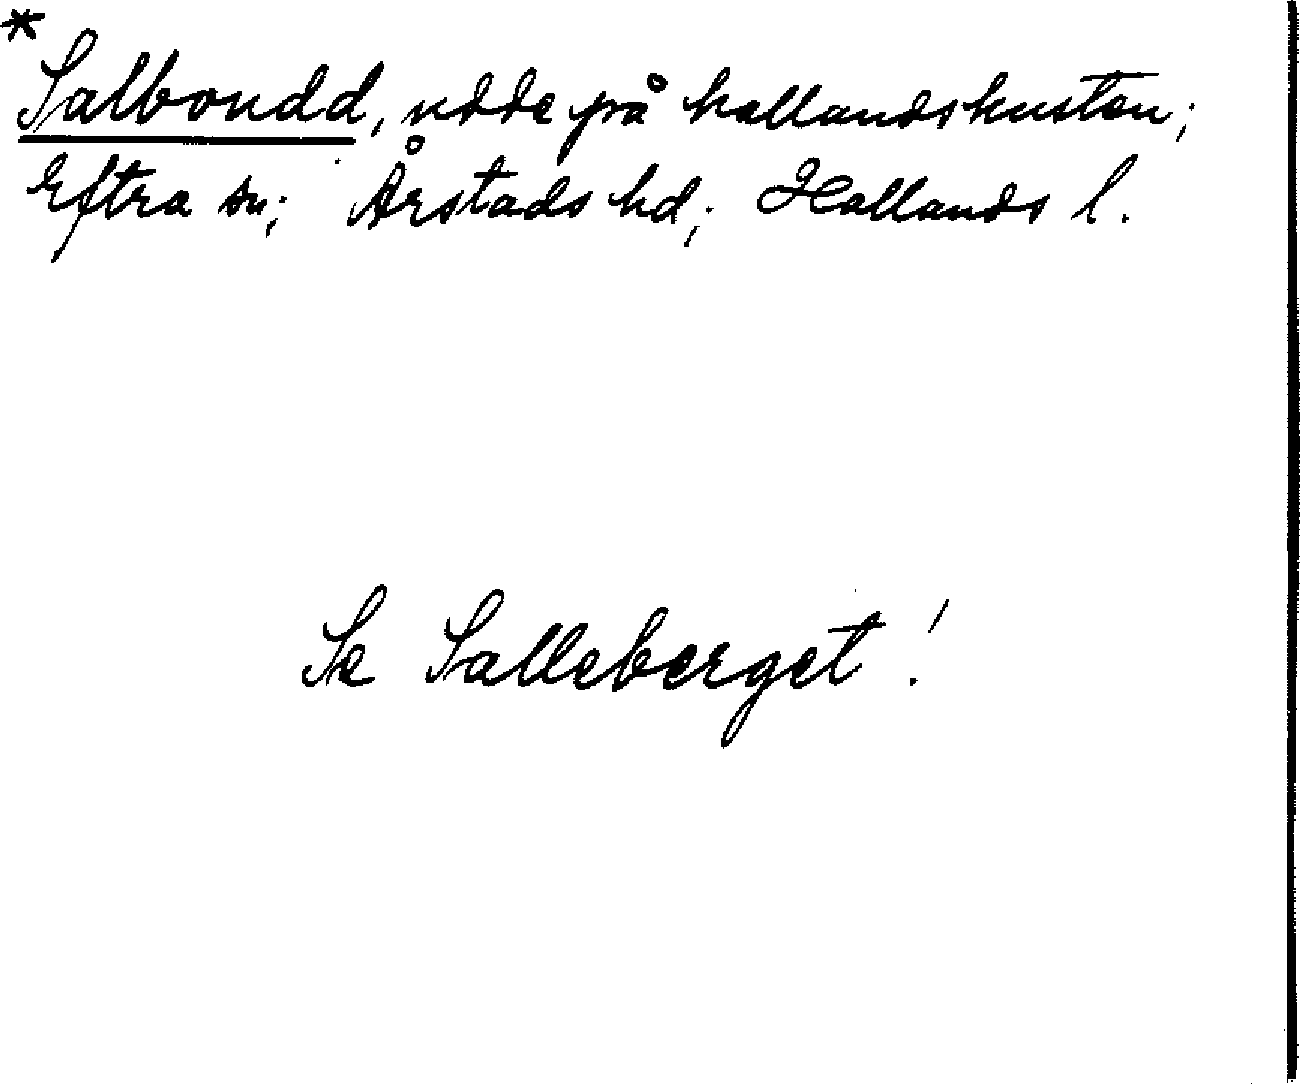 *
Salboudd, udde på hallandskusten;
Eftra sn; Årstads hd; Hallands l.
Se Salleberget!